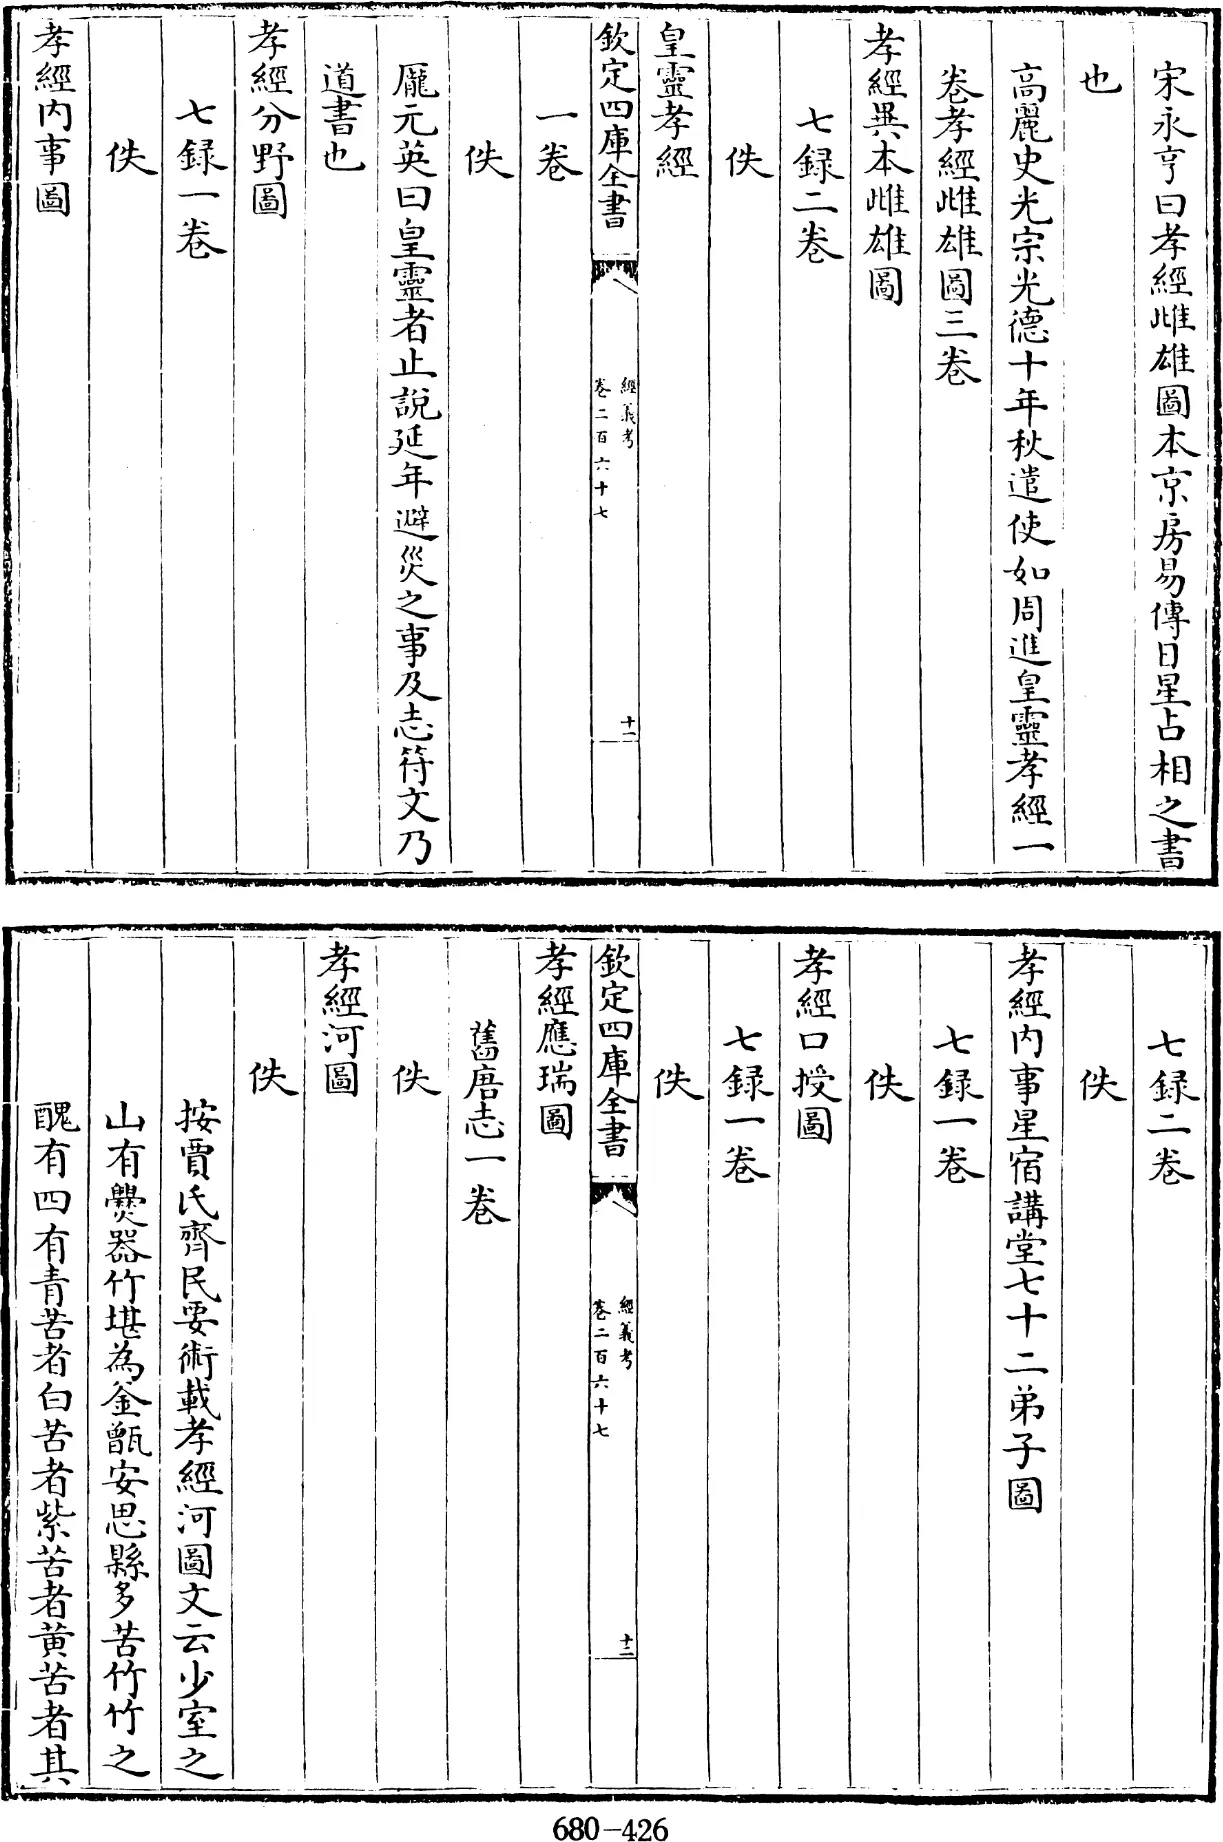 宋永亨曰孝經雌雄圖本京房易傳日星占相之書
也
高麗史光宗光德十年秋遣使如周進皇靈孝經一
卷孝經雌雄圖三卷
孝經異本雌雄圖
七録二卷
佚
皇靈孝經
欽定四庫全書
經義考
卷二百六十七
十一
一卷
佚
龎元英曰皇靈者止說延年避災之事及志符文乃
道書也
孝經分野圖
七録一卷
佚
孝經内事圖
七録二卷
佚
孝經内事星宿講堂七十二弟子圖
七録一卷
佚
孝經口授圖
七録一卷
佚
欽定四庫全書
經義考
卷二百六十七
十二
孝經應瑞圖
舊唐志一卷
佚
孝經河圖
佚
按賈氏齊民要術載孝經河圖文云少室之
山有㸑器竹堪為釜甑安思縣多苦竹竹之
醜有四有青苦者白苦者紫苦者黄苦者其
680-426